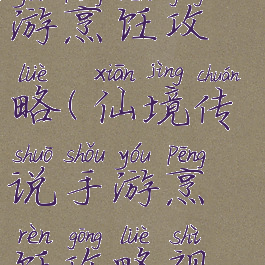 游烹饪攻
lüè xiān jìng chuán
略(仙境传
shuō shǒu yóu pēng
说手游烹
rèn gōng lüè shì
饪攻略视